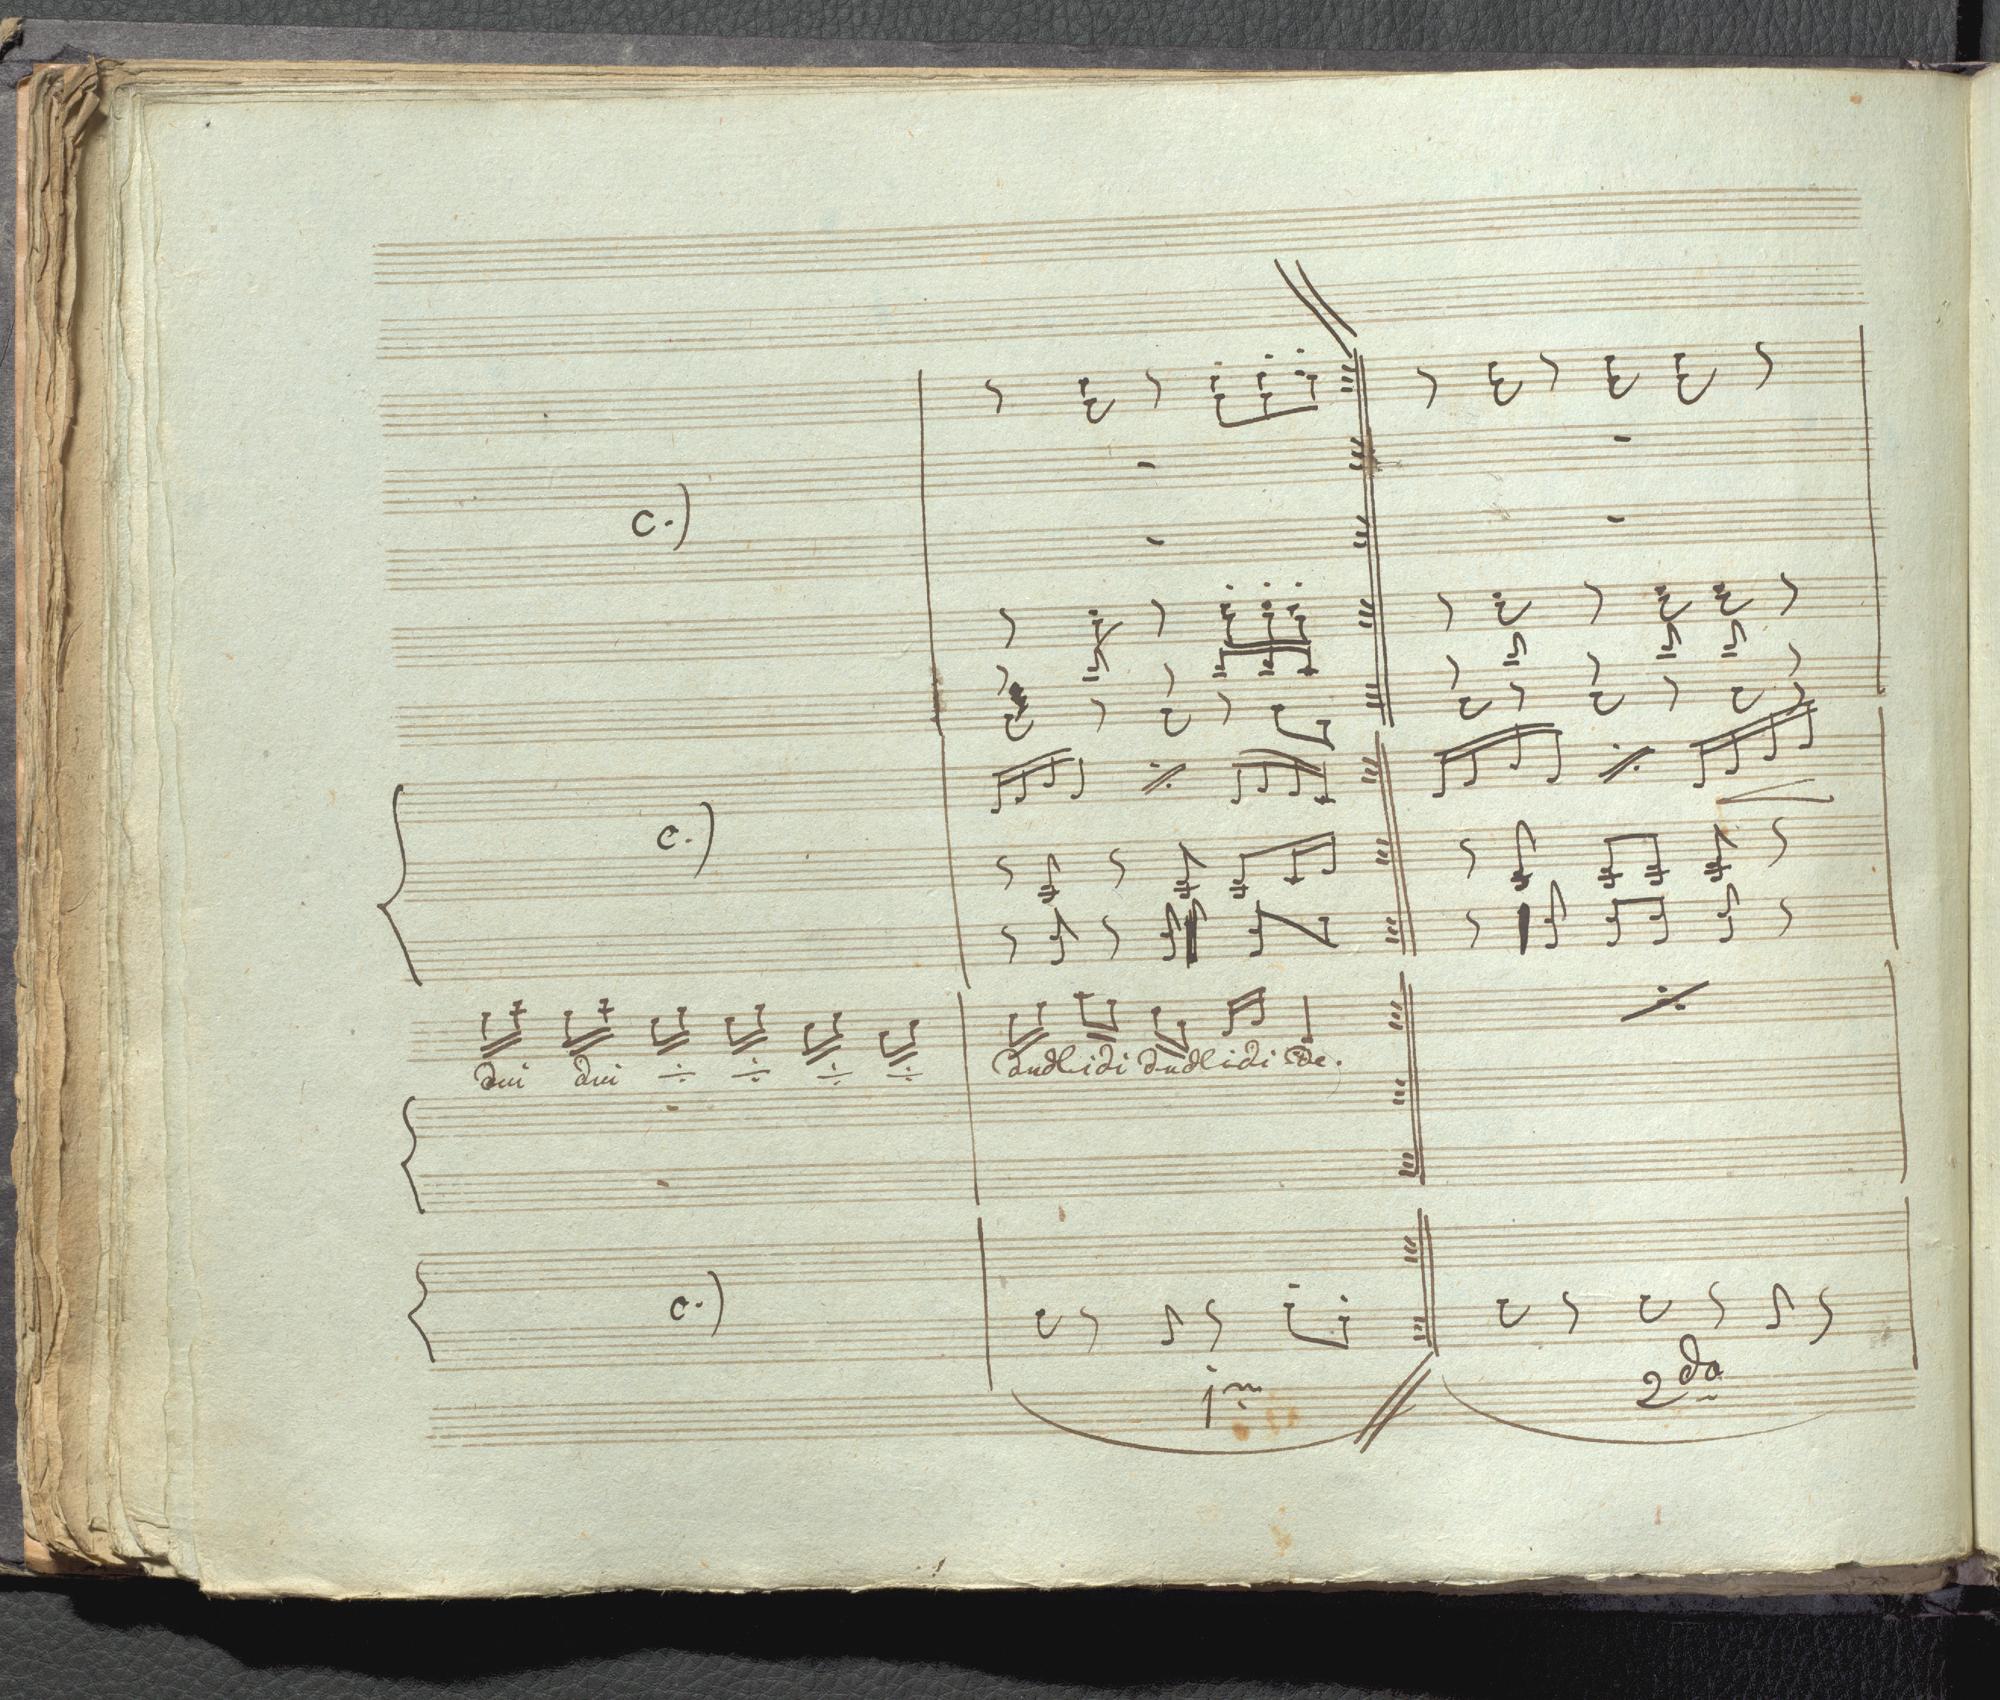 c.)
c.)
dui dui
dudlidi dudlidi de.
c.)
1m 2da